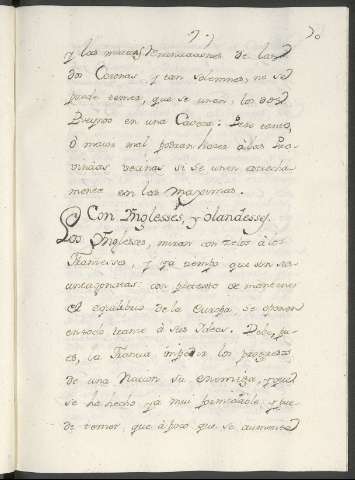 77
70
y las mutuas Renunciaciones de las
dos Coronas, y tan solemnes, no se
puede temer, que se unan, los dos
Reynos en una Caveza: Pero tanto,
ó maior mal podran hacer à las Pro
vincias vecinas si se unen estrecha
mente en las Maximas.
Con Ynglesses, y olandesses.
Los Ynglesses, miran con zelos à los
Francesses, y ya tiempo que sin sus
antagonistas: con pretexto de mantener
el equilibrio de la Europa, se oponen
en todo trance à sus Ideas. Debe, pu
es, la Francia impedir los progresos
de una Nacion su enemiga, y que
se ha hecho ya mui formidable, y pue
de temer, que à poco que se aumente